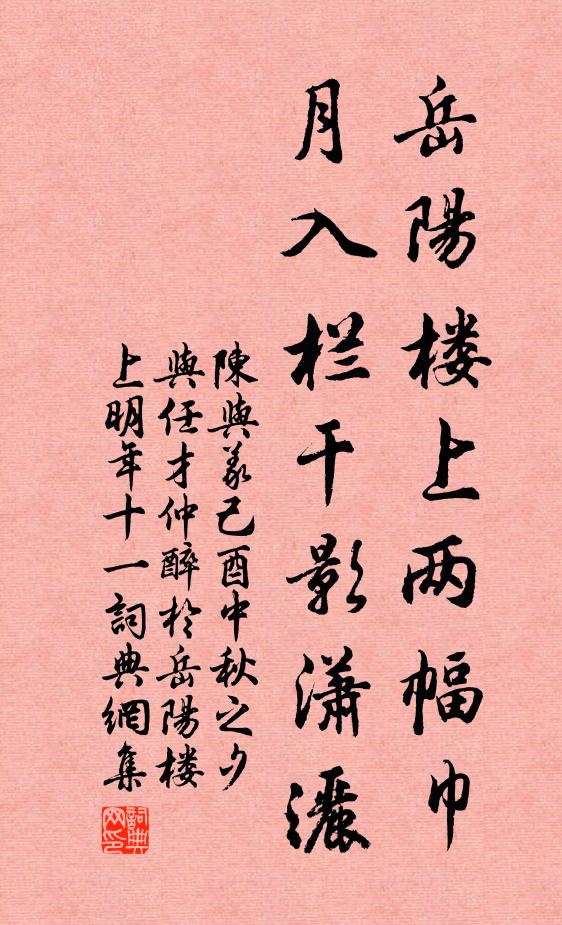 岳陽楼上两幅巾
月入栏干影瀟灑
陳與義己酉中秋之夕
與任才仲醉於岳陽楼
上明年十一詞典網集
詞典网印